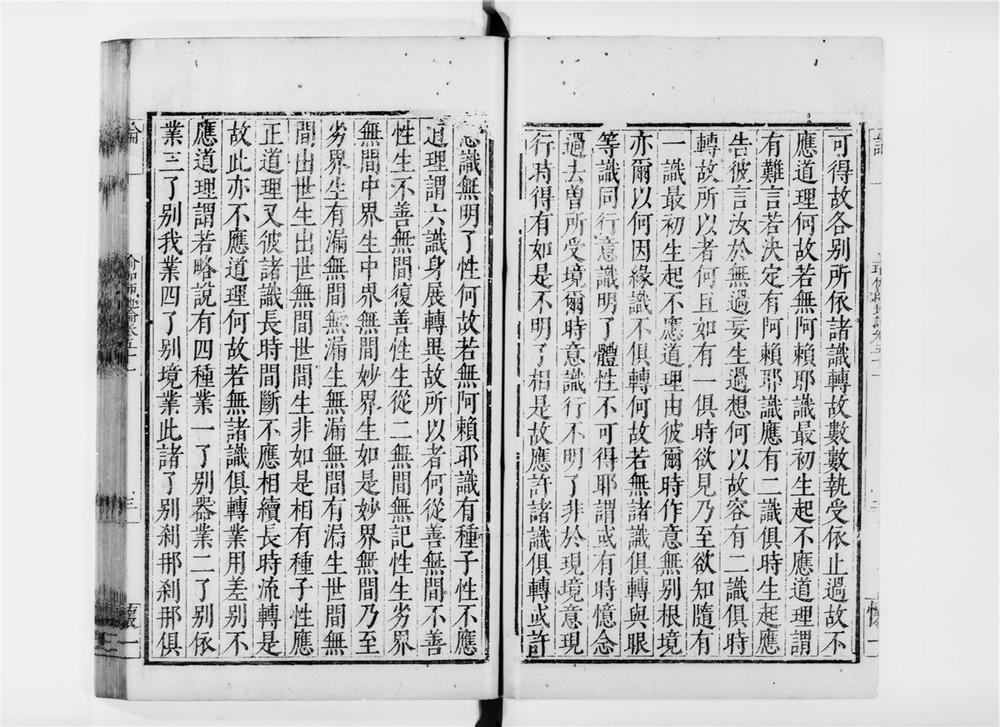 可得故各別所依諸識轉故數數執受依止過故不
應道理何故若無阿賴耶識最初生起不應道理謂
有難言若決定有阿賴耶識應有二識俱時生起應
告彼言汝於無過妄生過想何以故容有二識俱時
轉故所以者何且如有一俱時欲見乃至欲知隨有
一識最初生起不應道理由彼爾時作意無別根境
亦爾以何因緣識不俱轉何故若無諸識俱轉與眼
等識同行意識明了體性不可得耶謂或有時憶念
過去曾所受境爾時意識行不明了非於現境意現
行時得有如是不明了相是故應許諸識俱轉或許
意識無明了性何故若無阿賴耶識有種子性不應
道理謂六識身展轉異故所以者何從善無間不善
性生不善無間復善性生從二無間無記性生劣界
無間中界生中界無間妙界生如是妙界無間乃至
劣界生有漏無間無漏生無漏無間有漏生世間無
間出世生出世無間世間生非如是相有種子性應
正道理又彼諸識長時間斷不應相續長時流轉是
故此亦不應道理何故若無諸識俱轉業用差別不
應道理謂若略說有四種業一了別器業二了別依
業三了別我業四了別境業此諸了別刹那刹那俱
論
瑜伽師地論卷五十一
三